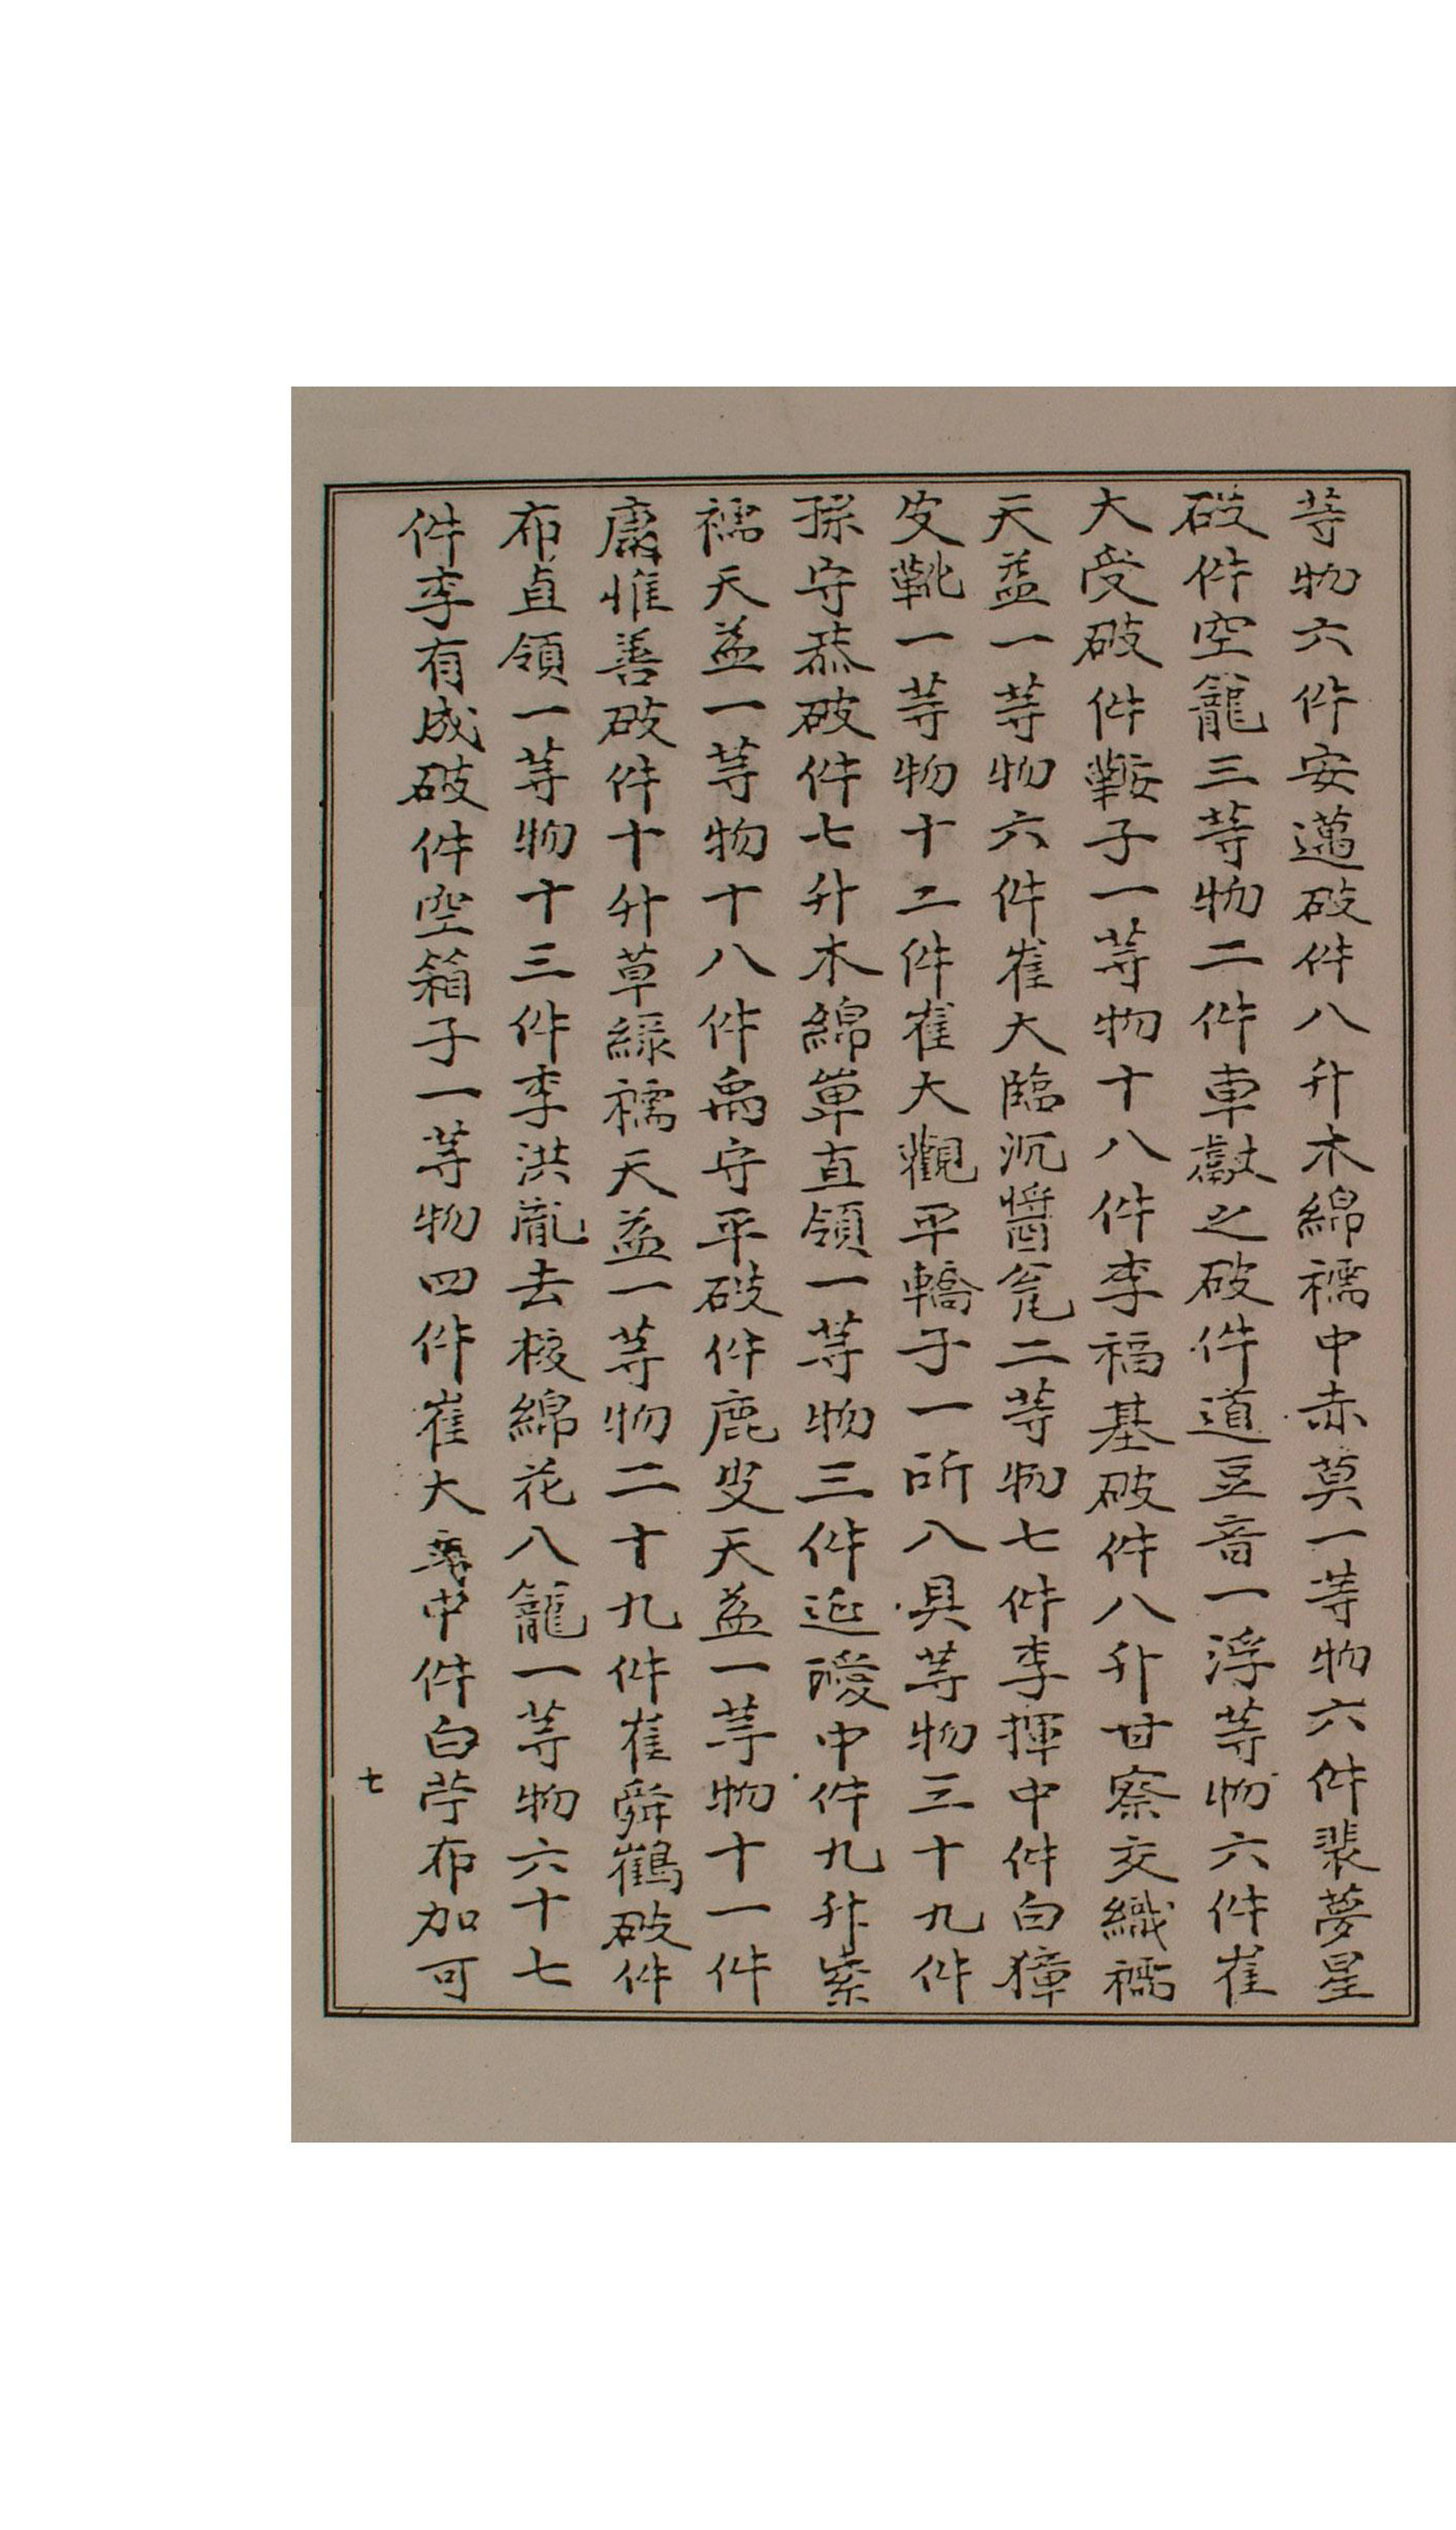 等物六件安邁破件八升木綿襦中赤莫一等物六件裴夢星
破件空籠三等物二件車獻之破件道豆音一浮等物六件崔
大受破件鞍子一等物十八件李福基破件八升甘察交織襦
天益一等物六件崔大臨沉醬瓮二等物七件李揮中件白獐
皮靴一等物十二件崔大觀平轎子一所八具等物三十九件
孫守恭破件七升木綿單直領一等物三件延曖中件九升紫
襦天益一等物十八件禹守平破件鹿皮天益一等物十一件
康惟善破件十升草綠襦天益一等物二十九件崔舜鶴破件
布直領一等物十三件李洪胤去核綿花八籠一等物六十七
件李有成破件空箱子一等物四件崔大中件白苧布加可
七